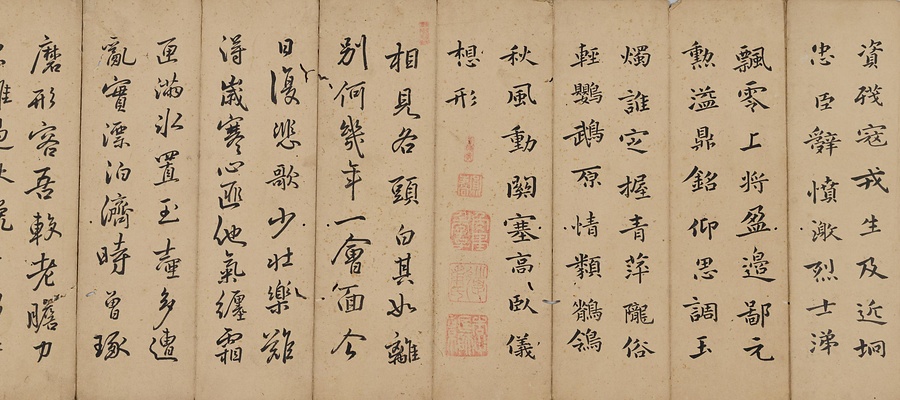 資殘寇戎生及近坰
忠臣辭憤激烈士涕
飄零上將盈邊鄙元
勲溢鼎銘仰思調玉
燭誰定握青萍隴俗
輕鸚鵡原情類鶺鴒
秋風動關塞高臥儀
想形
相見各頭白其如離
別何幾年一會面今
日復悲歌少壯樂難
得歲寒心匪他氣纏霜
匣滿冰置玉壺多遭
亂實漂泊濟時曾琢
磨形容吾較老膽力